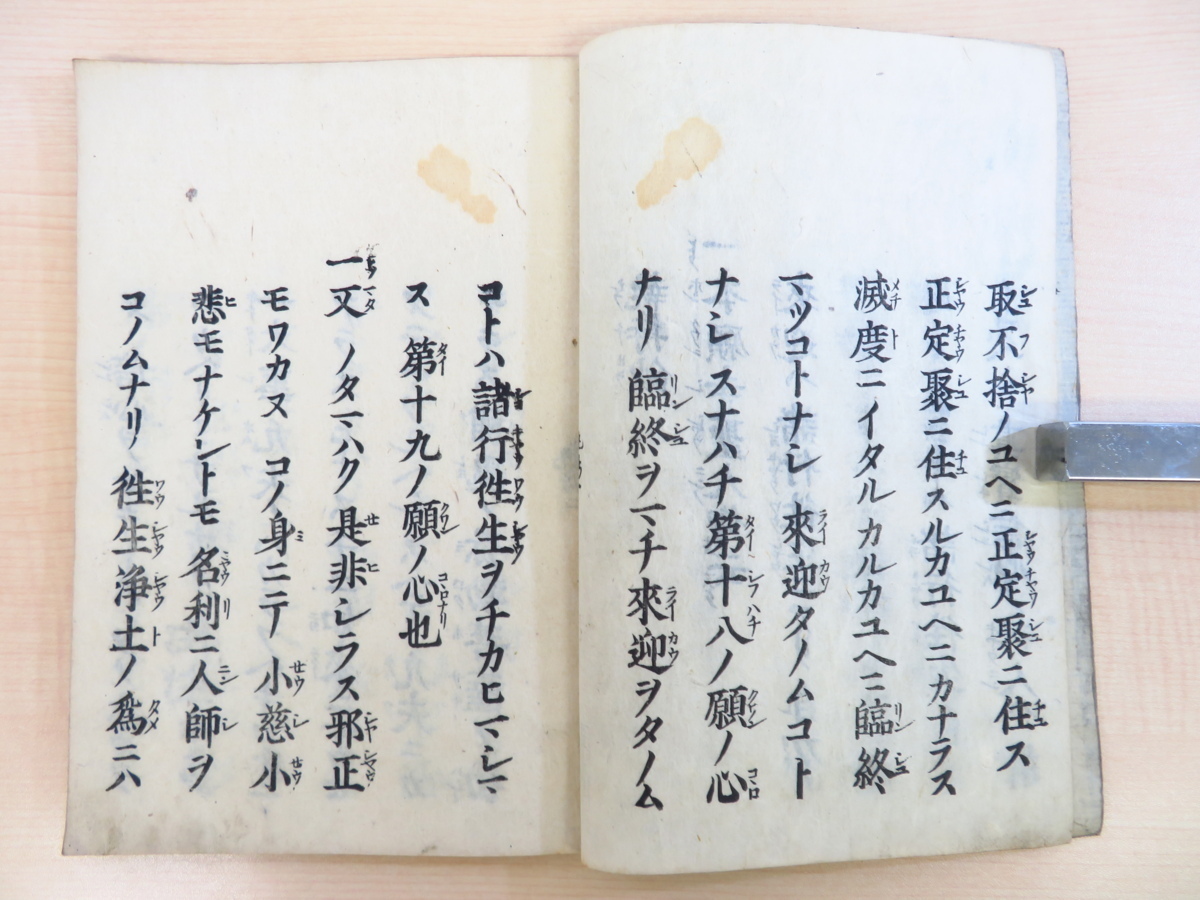 取不捨ノユヘニ正定聚ニ住ス
正定聚ニ住スルカユヘニカナラス
滅度ニイタルカルカユヘニ臨終
マツコトナシ 來迎タノムコト
ナシ スナハチ第十八ノ願ノ心
ナリ 臨終ヲマチ來迎ヲタノム
コトハ諸行徃生ヲチカヒマシマ
ス 第十九ノ願ノ心也
一又ノタマハク 是非シラス邪正
モワカヌ コノ身ニテ 小慈小
悲モナケレトモ 名利ニ人師ヲ
コノムナリ 徃生浄土ノ爲ニハ